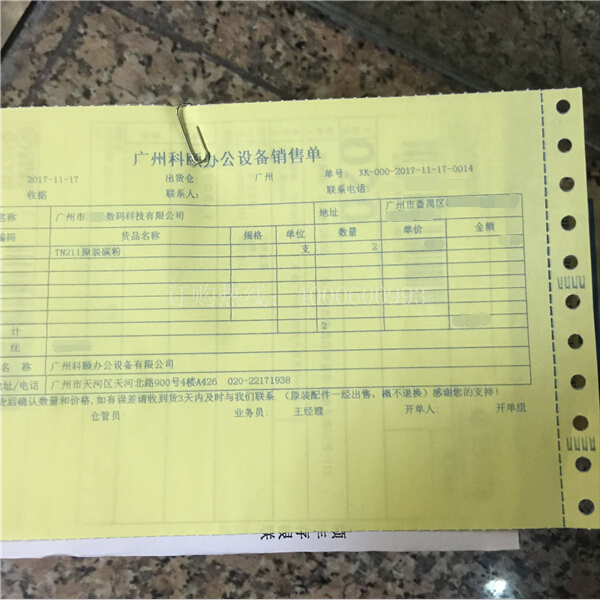 广州科颐办公设备销售单
2017-11-17 出货仓 广州 单号: XK-000-2017-11-17-0014
收据 联系人: 联系电话:
名称 广州市 数码科技有限公司 地址 广州市番禺区
编码 货品名称 规格 单位 数量 单价 金额
TN211原装碳粉 支 2
订购热线: 4000600993
计 2
注
名称 广州科颐办公设备有限公司
地址/电话 广州市天河区天河北路900号4楼A426 020-22171938
货后确认数量和价格,如有误差请收到货3天内及时与我们联系.(原装配件一经出售,概不退换)感谢您的支持!
仓管员 业务员: 王经理 开单人: 开单组